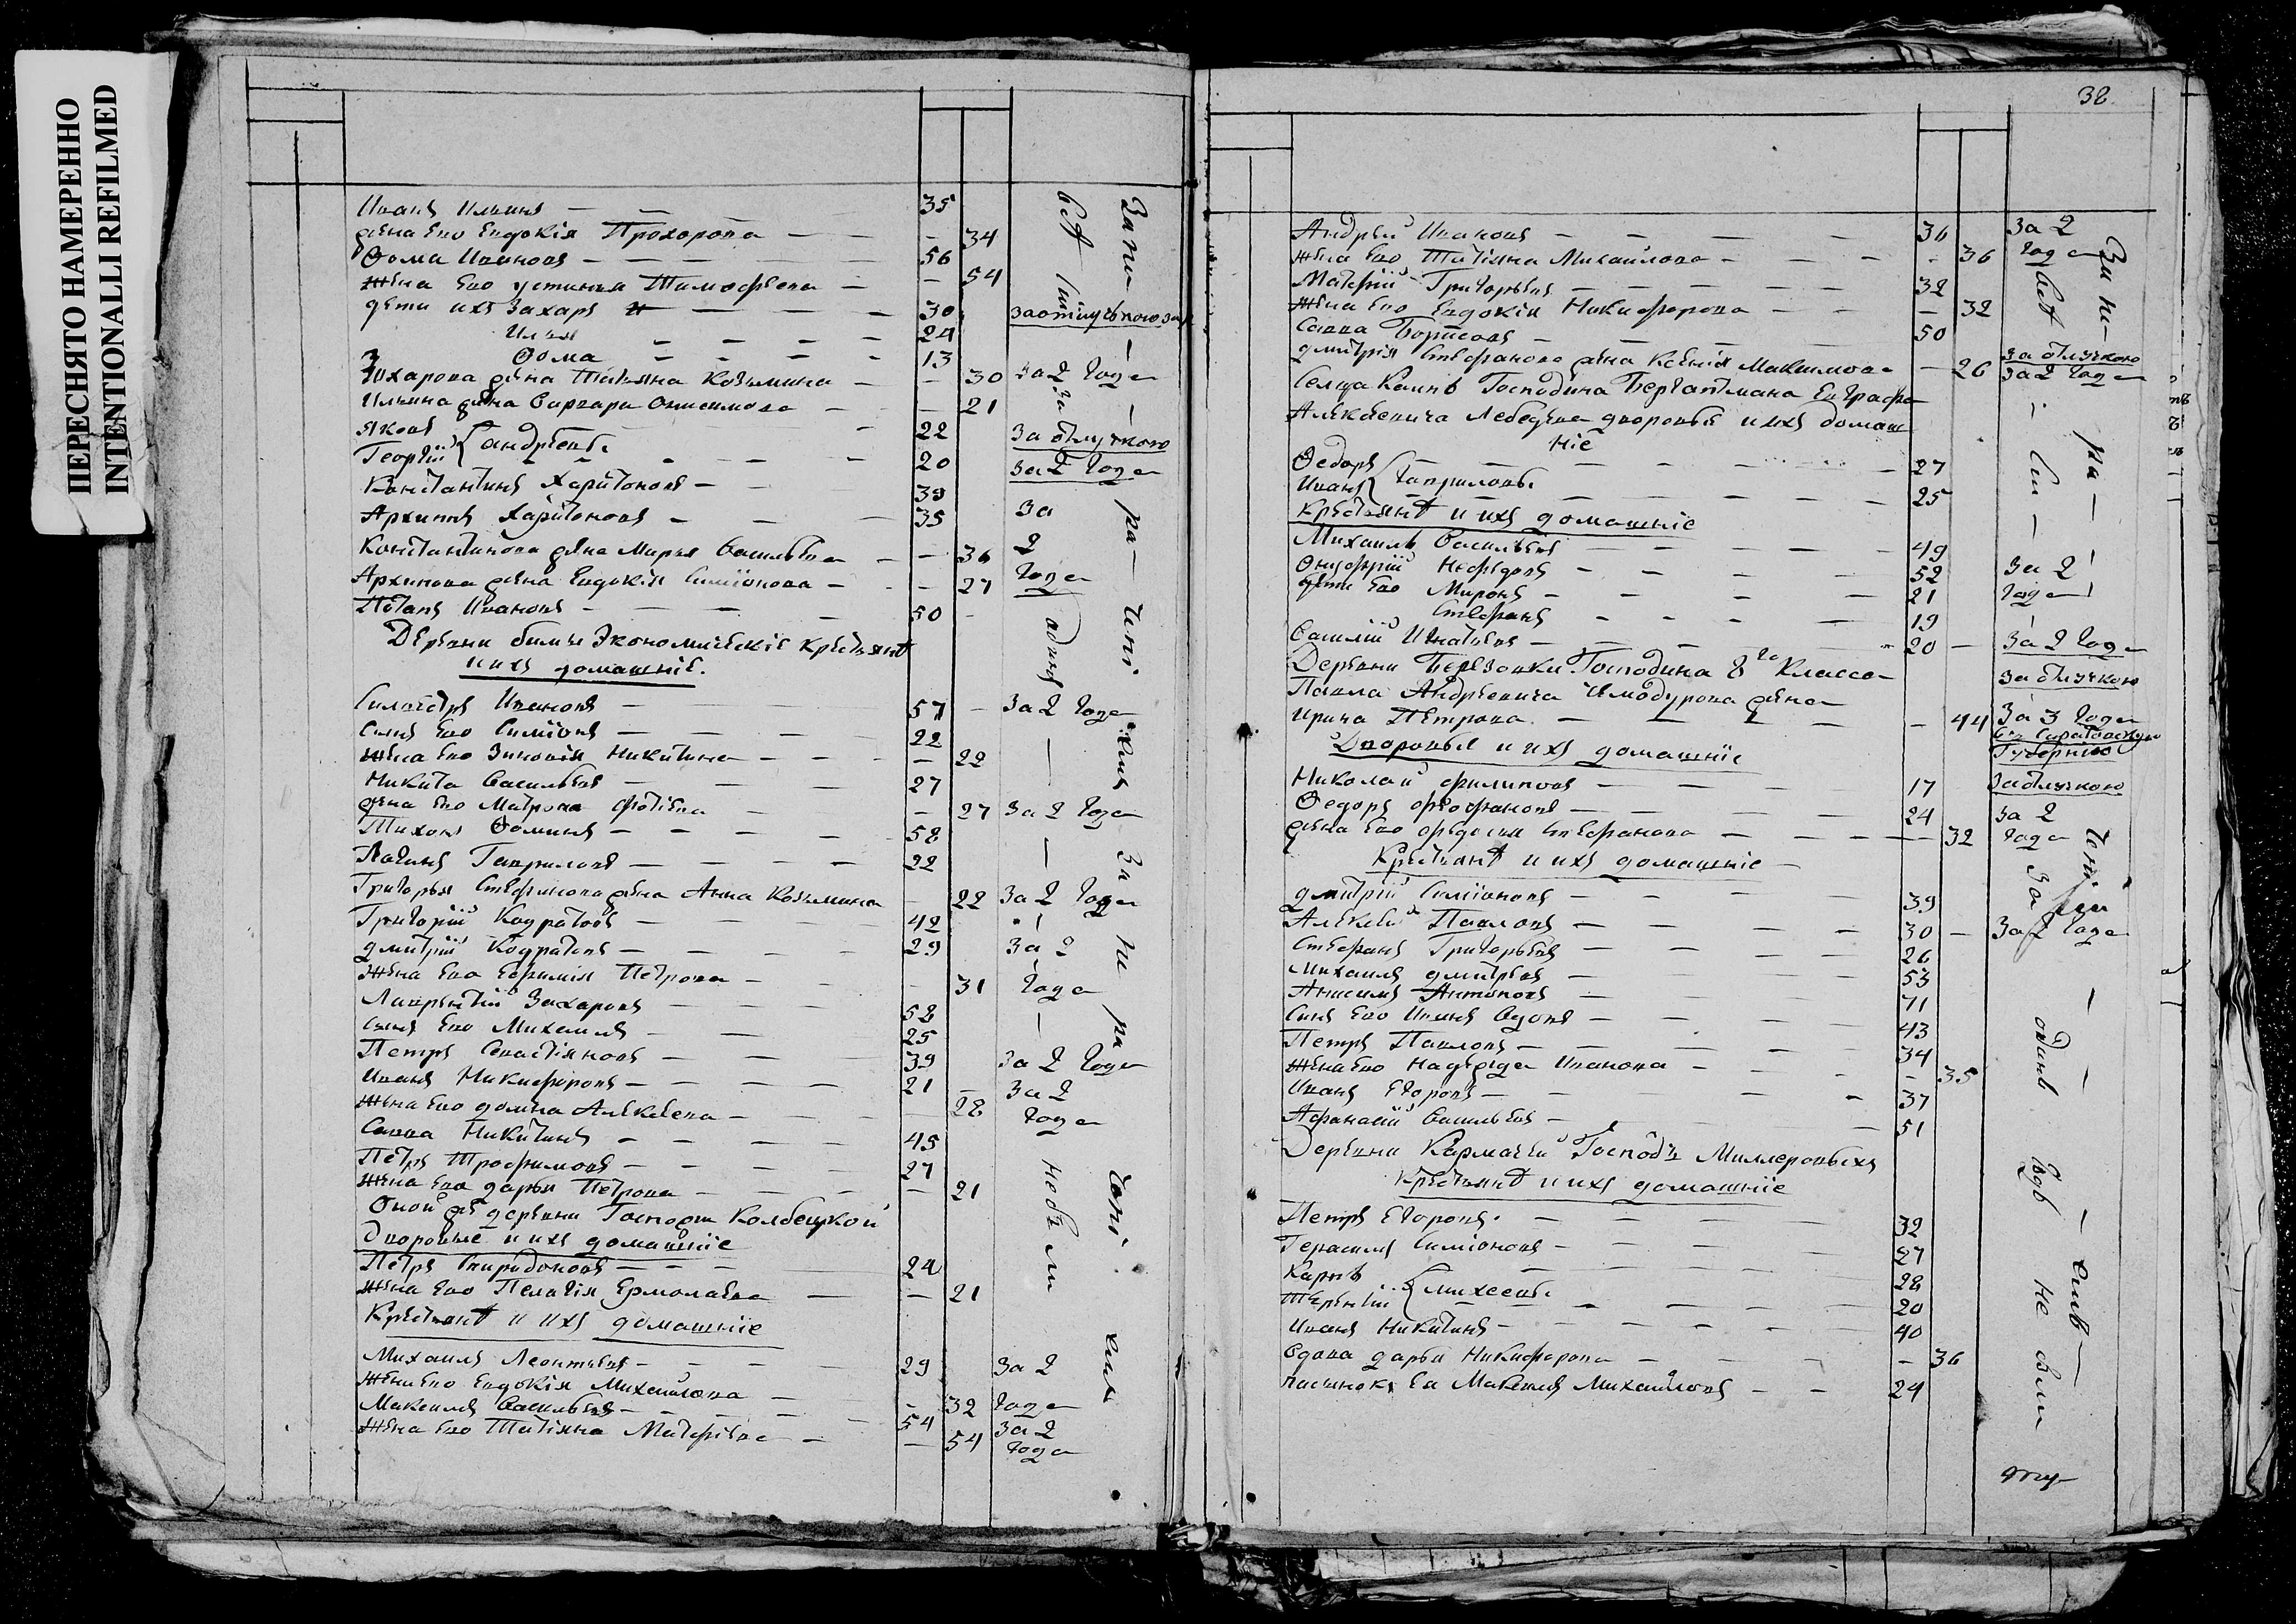 ПЕРЕСНЯТО НАМЕРЕННО
INTENTIONALLI REFILMED
Иванъ Ильинъ — 35
жена ево Евдокія Прохорова — 34
Ѳома Ивановъ — 56
жена ево Устинья Тимофѣева — 54
дѣти ихъ Захаръ — 30
Илья — 24
Ѳома — 13
Захарова жена Татьяна Козьмина — 30 За 2 года
Ильина жена Варвара Онисимова — 21
Яковъ — 22
Георгій } Андрѣевы 20
За отлучкою
За 2 года
Константинъ Харитоновъ — 39
Архипъ Харитоновъ — 35
За
2
года
Константинова жена Марья Васильева — 36
Архипова жена Евдокія Симіонова — 27
Потапъ Ивановъ — 50
Деревни Экономическіе крестьянѣ
и ихъ домашніе.
Силвестръ Ивановъ — 57 — За 2 года
Сынъ ево Симіонъ 22
жена ево Зиновія Никитина — 22
Никита Васильевъ — 27
жена ево Матрона Фотіева — 27 За 2 года
Тихонъ Ѳоминъ — 58
Гавриловъ — 22
Григорья Стефанова жена Анна Козьмина 22 За 2 года
Григорій Кодратовъ — 42
Дмитрій Кодратовъ — 29 За 2
жена ево Ефимія Петрова — 31 года
Лаврентій Захаровъ — 58
Сынъ ево Михаилъ — 25
Петръ Севастіяновъ — 39 За 2 года
Иванъ Никифоровъ — 21 — За 2
жена ево Домна Алексѣева — 28 года
Савва Никитинъ — 45
Петръ Трофимовъ — 27
жена ево Дарья Петрова — 21
Оной же деревни Госпожи Колбецкой
Дворовые и ихъ домашніе
Петръ Спиридоновъ — 24
жена ево Пелагія Ермолаева — 21
Крестьянѣ и ихъ домашніе
Михаилъ Леонтьевъ — 29 За 2
жена ево Евдокія Михайлова — 32 года
Максимъ Васильевъ — 54 За 2
жена ево Татіяна Матфѣева — 54 года
38
Андрей Ивановъ — 36 За 2
жена ево Татіяна Михайлова — 36 года
Матфій Григорьевъ — 32
жена ево Евдокія Никифорова — 32
Савва Борисовъ — 50
Дмитрія Стефанова жена Ксенія Максимова — 26
За отлучкою
За 2 года
Селца Господина Евграфа
Алексѣевича Лебедева дворовые и ихъ домаш
ніе
Ѳедоръ — 27
Иванъ } Гавриловы 25
Крестьянѣ и ихъ домашніе
Михаилъ Васильевъ — 49
Онуфрій Нефедовъ — 52 За 2
дѣти ево Миронъ — 21 года
Стефанъ — 19
Василій Игнатьевъ — 20 — За 2 года
Деревни Березовки Господина 8го Класса
За отлучкою
Павла Андрѣевича жена
Ирина Петрова — 44 За 3 года
въ Саратовскую
Губернію
Дворовые и ихъ домашніе
Николай Филиповъ — 17 За отлучкою
Ѳедоръ Ѳеофановъ — 24 За 2
жена ево Ѳедосія Стефанова — 32 года
Крестьянѣ и ихъ домашніе
Дмитрій Симіоновъ — 39
Алексѣй Павловъ — 30 — За 2 года
Стефанъ Григорьевъ — 26
Михаилъ Дмитрѣевъ — 53
Анисимъ Антоновъ — 71
Сынъ ево Иванъ вдовъ — 43
Петръ Павловъ — 34
жена ево Надежда Иванова — 35
Иванъ Егоровъ — 37
Афанасій Васильевъ — 51
Деревни Кармачеи Господъ Миллеровыхъ
Крестьянѣ и ихъ домашніе
Петръ Егоровъ — 32
Герасимъ Симіоновъ — 27
Карпъ — 28
Терентій } Михеевы 20
Иванъ Никитинъ — 40
Вдова Дарья Никифорова — 36
пасынокъ ея Максимъ Михайловъ — 24